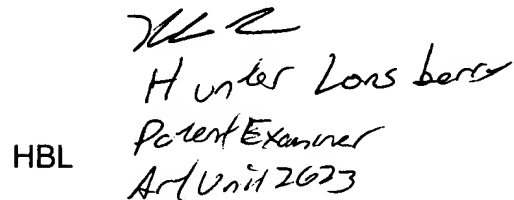 Hunter Lonsberry
Patent Examiner
HBL
Art Unit 2623